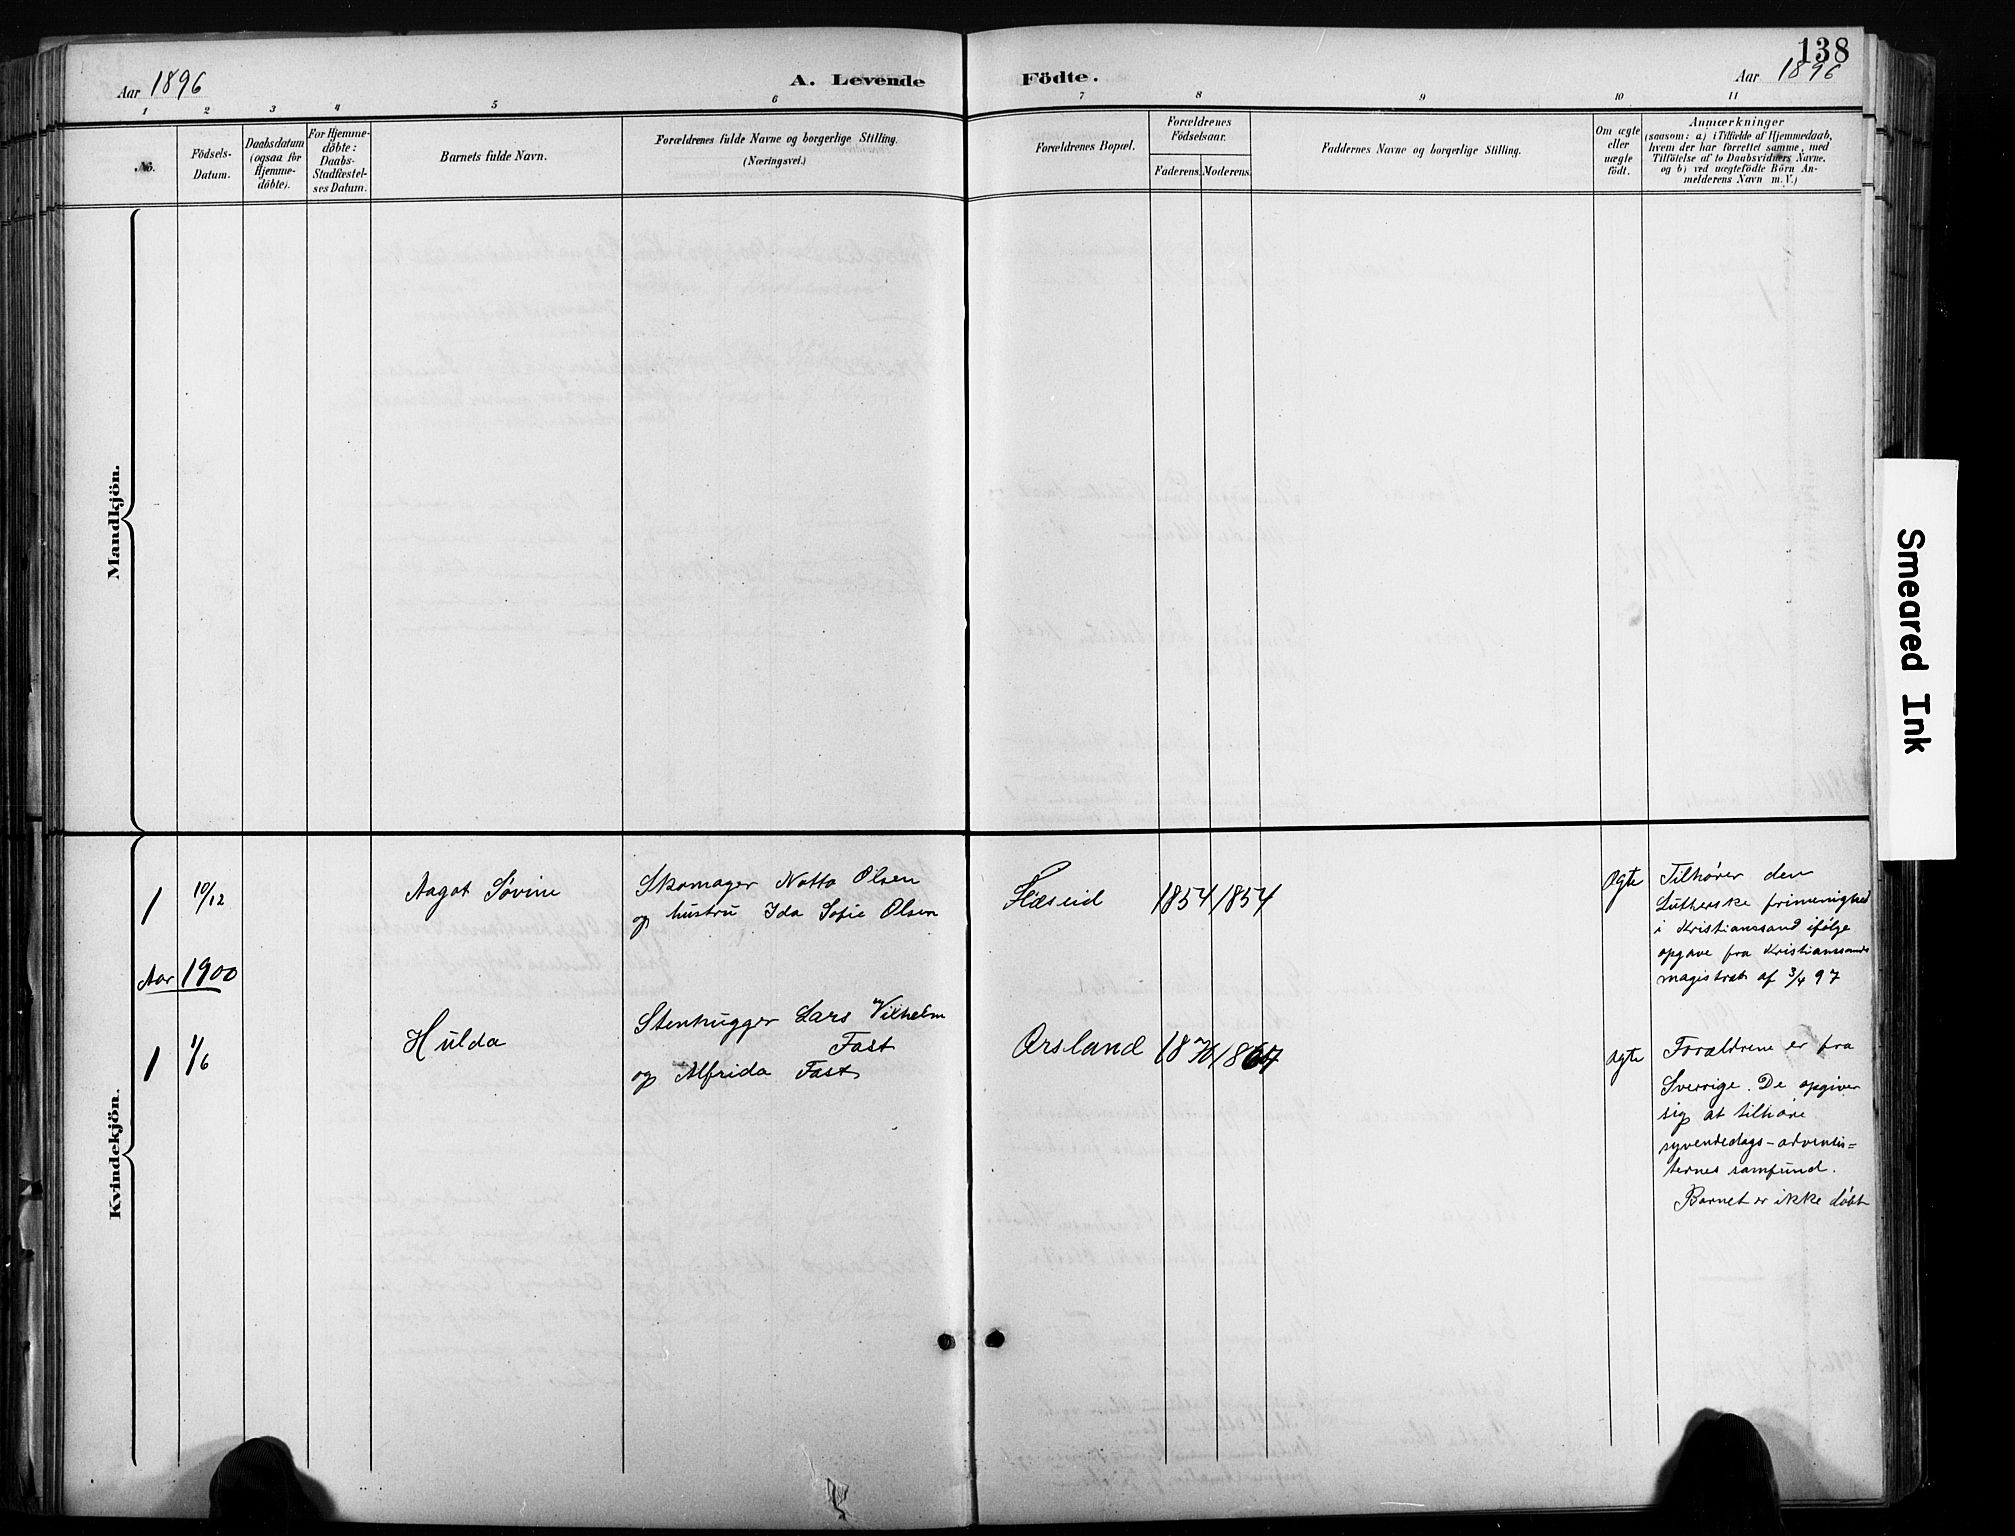 138
Aar 1896
A. Levende
Födte.
Aar 1896
1 2 3 4 5 6 7 8 9 10 11
No.
Födsels-
Datum.
Daabsdatum
(ogsaa for
Hjemme-
döbte).
For Hjemme-
döbte:
Daabs-
Stadfæstel-
ses Datum.
Barnets fulde Navn.
Forældrenes fulde Navne og borgerlige Stilling.
(Næringsvei.)
Forældrenes Bopæl.
Forældrenes
Födselsaar.
Faderens.
Moderens.
Faddernes Navne og borgerlige Stilling.
Om ægte
eller
uægte
født.
Anmærkninger
(saasom: a) i Tilfælde af Hjemmedaab,
hvem der har forrettet samme, med
Tilföielse af to Daabsvidners Navne.
og b) ved uægtefödte Börn An-
melderens Navn m. V.)
Mandkjön.
Kvindekjön.
1 10/12 Aagot Søvine
Skomager Notto Olsen
og hustru Ida Sofie Olsen
1854 1854
ægte
Tilhører den
Lutherske frimenighed
i Kristianssand ifølge
opgave fra Kristianssands
magistrat af 3/4 97
Aar 1900
1 1/6 Hulda
Stenhugger Lars Vilhelm
Fast
og Alfrida Fast
Orsland
1867
ægte
Forældrene er fra
Sverrige. De opgiver
sig at tilhøre
syvendedags-adventis=
ternes samfund.
Barnet er ikke døbt
Smeared Ink